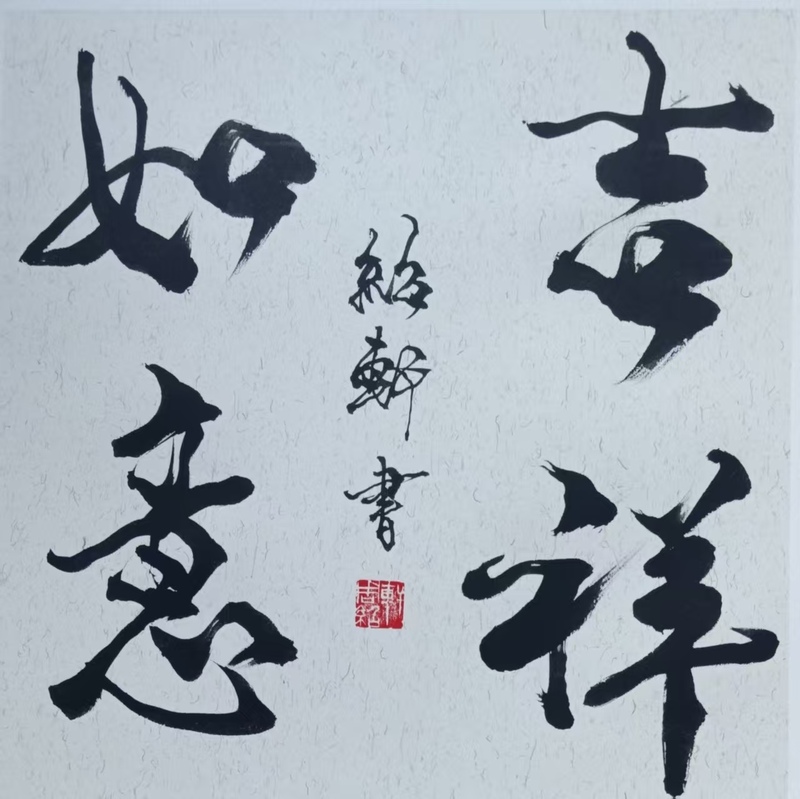 吉祥
如意
紹軒書